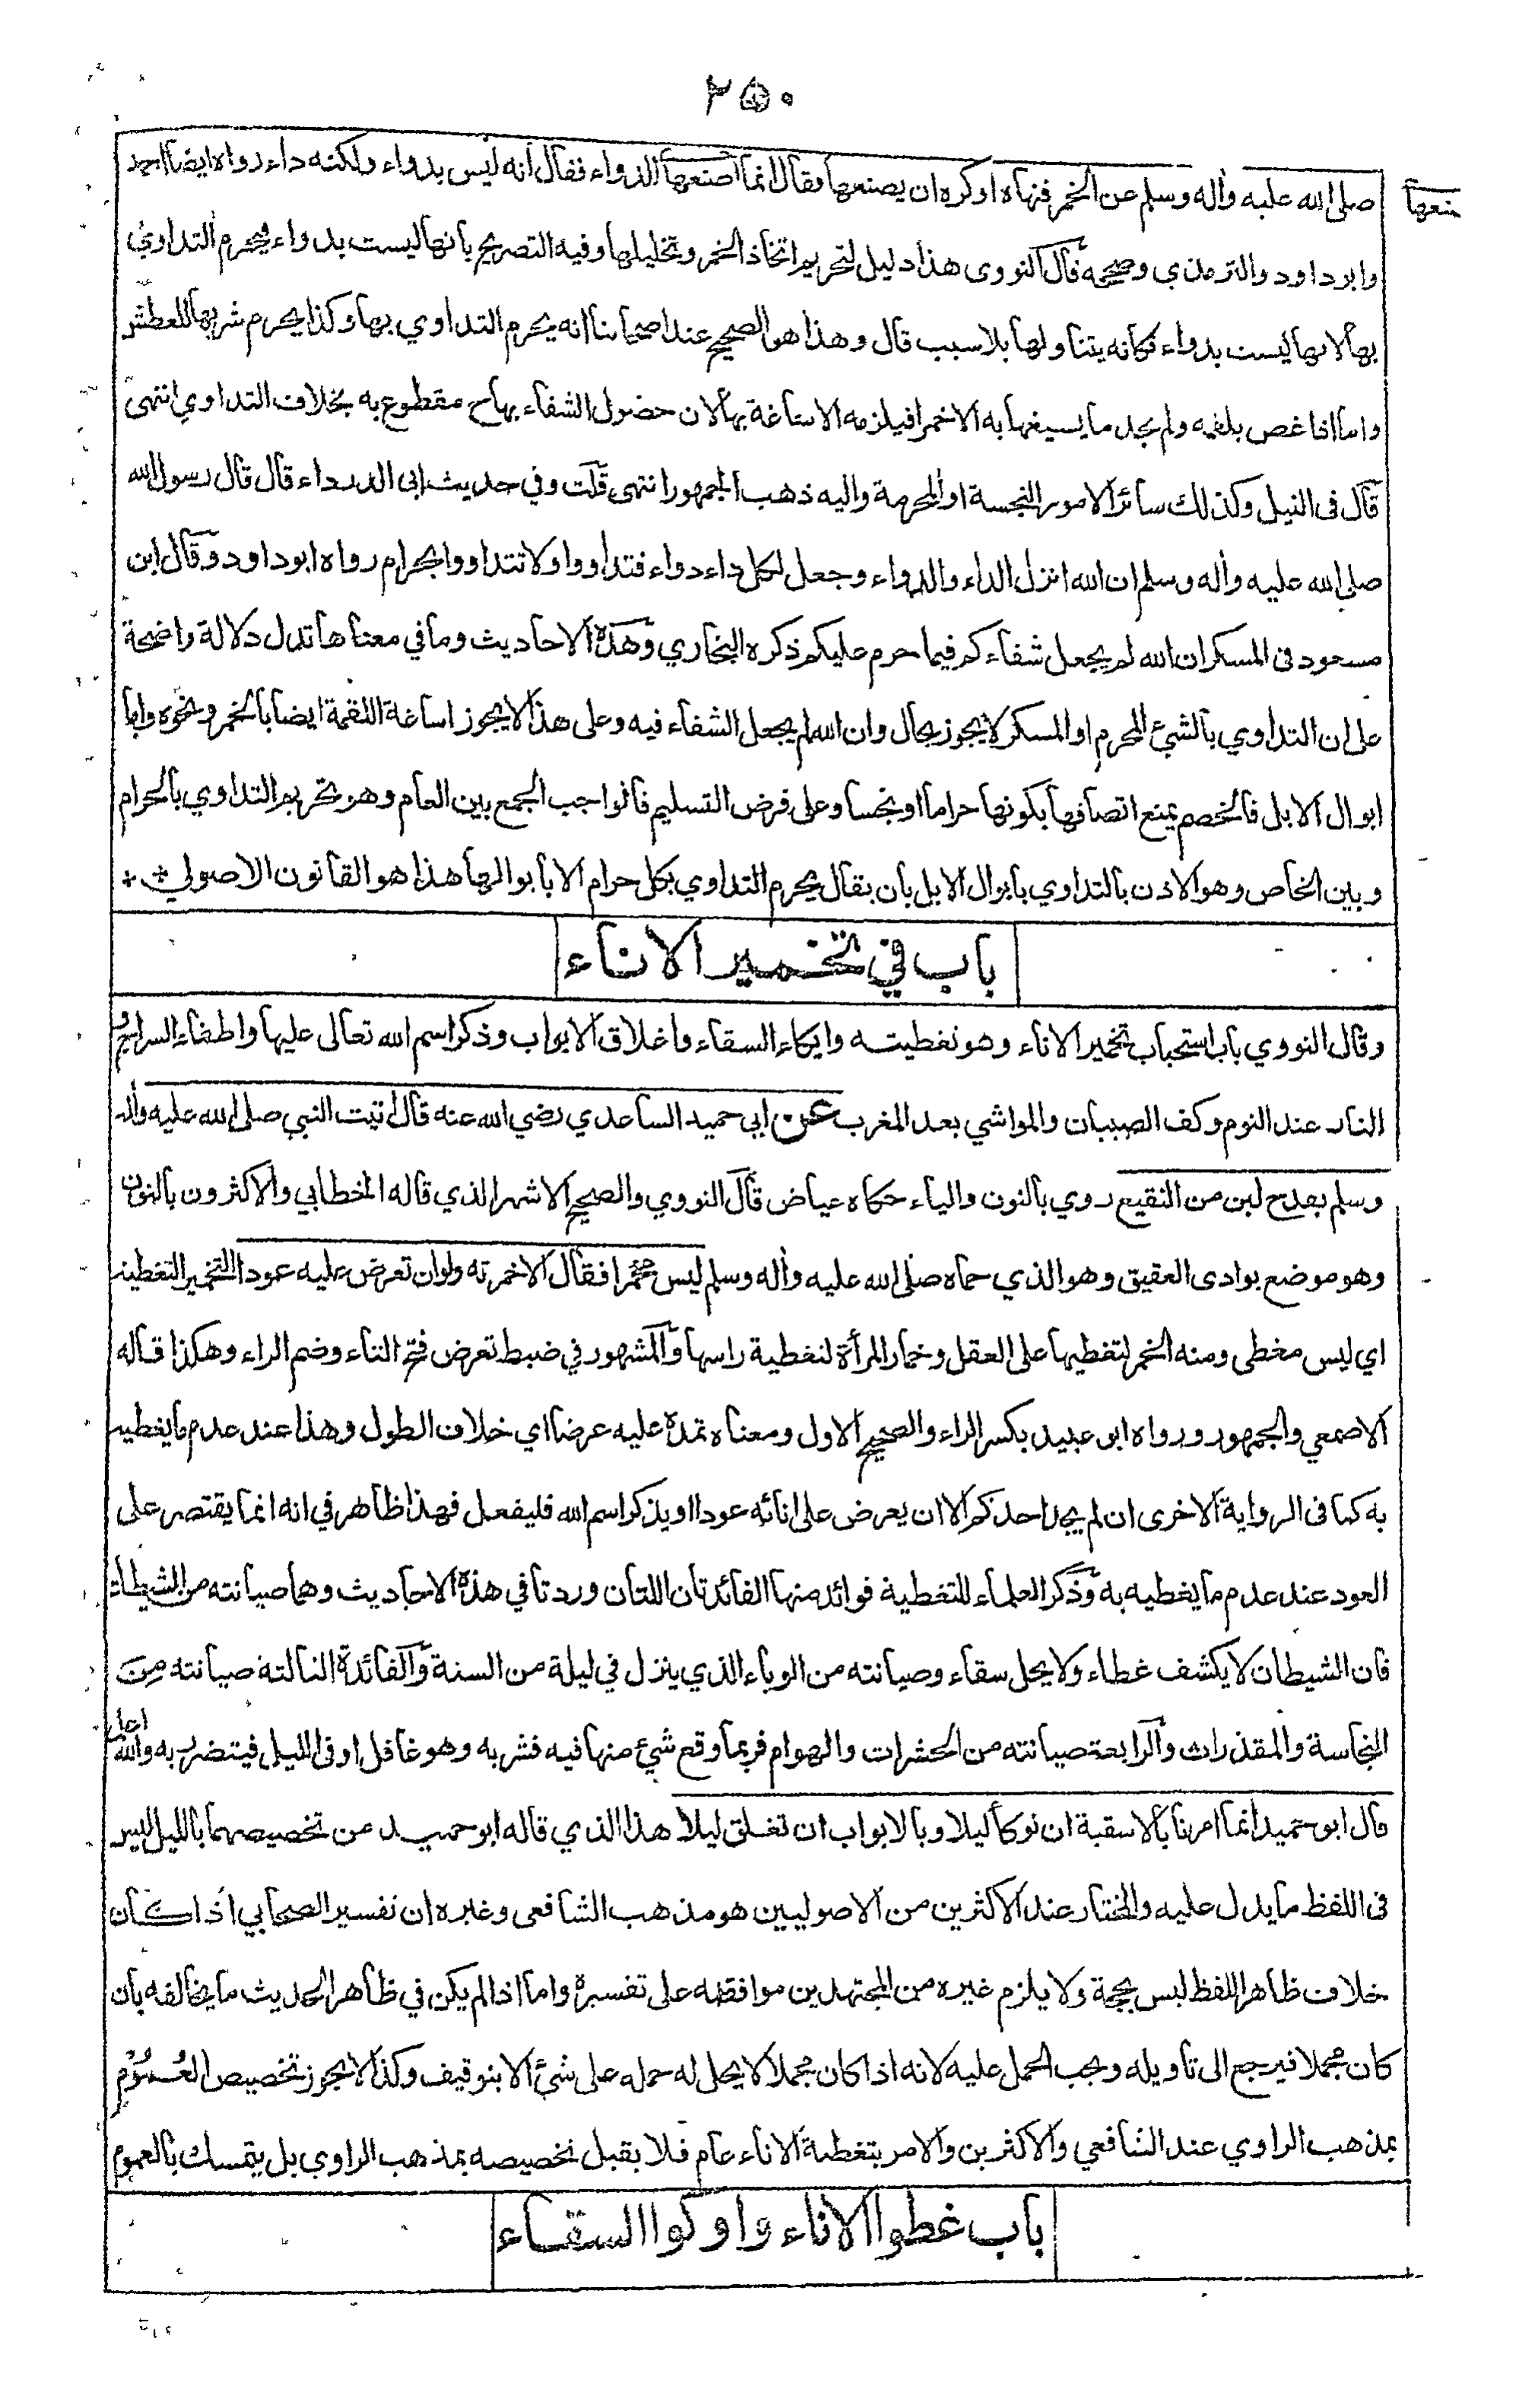 ٢٥٠
صلى الله عليه وأله وسلم عن الخمر فنهاه اوكره ان يصنعها فقال انما اصنعها للدواء فقال أنه ليس بدواء ولكنه داء رواه ايضا احمد
منعها
وابوداود والترمذي وصححه قال النووى هذا دليل لتحريم اتخاذ الخمر وتخليلها وفيه التصريح بأنها ليست بدواء فيحرم التداوي
بها لانها ليست بدواء فكانه يتناولها بلا سبب قال وهذا هو الصحيح عند اصحابنا انه يحرم التداوي بها وكذا يحرم شربها للعطش
واما اذا غص بلقمة ولم يجد ما يسيغها به الا خمرا فيلزمه الاساغة بها لان حصول الشفاء بها ح مقطوع به بخلاف التداوي انتهى
قال فى النيل وكذلك سائر الامور النجسة او المحرمة واليه ذهب الجمهور انتهى قلت وفي حديث ابى الدرداء قال قال رسول الله
صلى الله عليه وأله وسلم ان الله انزل الداء والدواء وجعل لكل داء دواء فتداووا ولا تتداووا بحرام رواه ابوداود وقال ابن
مسعود فى المسكر ان الله لم يجعل شفاءكم فيما حرم عليكم ذكره البخاري وهذه الاحاديث وما في معناها تدل دلالة واضحة
على ان التداوي بالشئ المحرم او المسكر لا يجوز بحال وان الله لم يجعل الشفاء فيه وعلى هذا لا يجوز اساغة اللقمة ايضا بالخمر ونحوه واما
ابوال الابل فالخصم يمنع اتصافها بكونها حراما او نجسا وعلى فرض التسليم فالواجب الجمع بين العام وهو تحريم التداوي بالحرام
وبين الخاص وهو الاذن بالتداوي بابوال الابل بأن يقال يحرم التداوي بكل حرام الا بابوالها هذا هو القانون الاصولي
باب في تخمير الاناء
وقال النووي باب استحباب تخمير الاناء وهو تغطيته وايكاء السقاء واغلاق الابواب وذكر اسم الله تعالى عليها واطفاء السراج و
النار عند النوم وكف الصبيان والمواشي بعد المغرب عن ابي حميد الساعدي رضي الله عنه قال اتيت النبي صلى الله عليه وأله
وسلم بقدح لبن من النقيع روي بالنون والياء حكاه عياض قال النووي والصحيح الاشهر الذي قاله الخطابي والاكثرون بالنون
وهو موضع بوادى العقيق وهو الذي حماه صلى الله عليه وأله وسلم ليس مخمرا فقال الا خمرته ولو ان تعرض عليه عودا التخمير التغطية
اي ليس مغطى ومنه الخمر لتغطيها على العقل وخمار المرأة لتغطية راسها والمشهور في ضبط تعرض فتح التاء وضم الراء وهكذا قاله
الاصمعي والجمهور ورواه ابو عبيد بكسر الراء والصحيح الاول ومعناه تمده عليه عرضا اي خلاف الطول وهذا عند عدم ما يغطيه
به كما فى الرواية الاخرى ان لم يجد احدكم الا ان يعرض على انائه عودا او يذكر اسم الله فليفعل فهذا ظاهر في انه انما يقتصر على
العود عند عدم ما يغطيه به وذكر العلماء للتغطية فوائد منها الفائدتان اللتان وردتا في هذه الاحاديث وهما صيانته من الشيطان
فان الشيطان لا يكشف غطاء ولا يحل سقاء وصيانته من الوباء الذي ينزل في ليلة من السنة والفائدة الثالثة صيانته من
النجاسة والمقذرات والرابعة صيانته من الحشرات والهوام فربما وقع شئ منها فيه فشربه وهو غافل او فى الليل فيتضرر به والله اعلم
قال ابو حميد انما امرنا بالاسقية ان توكأ ليلا وبالابواب ان تغلق ليلا هذا الذي قاله ابو حميد من تخصيصهما بالليل ليس
فى اللفظ ما يدل عليه والمختار عند الاكثرين من الاصوليين هو مذهب الشافعى وغيره ان تفسير الصحابي اذا كان
خلاف ظاهر اللفظ ليس بحجة ولا يلزم غيره من المجتهدين موافقته على تفسيره واما اذا لم يكن في ظاهر الحديث ما يخالفه بأن
كان مجملا فيرجع الى تأويله ويجب الحمل عليه لانه اذا كان مجملا لا يحل له حمله على شئ الا بتوقيف وكذا لا يجوز تخصيص العموم
بمذهب الراوي عند الشافعي والاكثرين والامر بتغطية الاناء عام فلا يقبل تخصيصه بمذهب الراوي بل يتمسك بالعموم
باب غطوا الاناء واوكوا السقاء